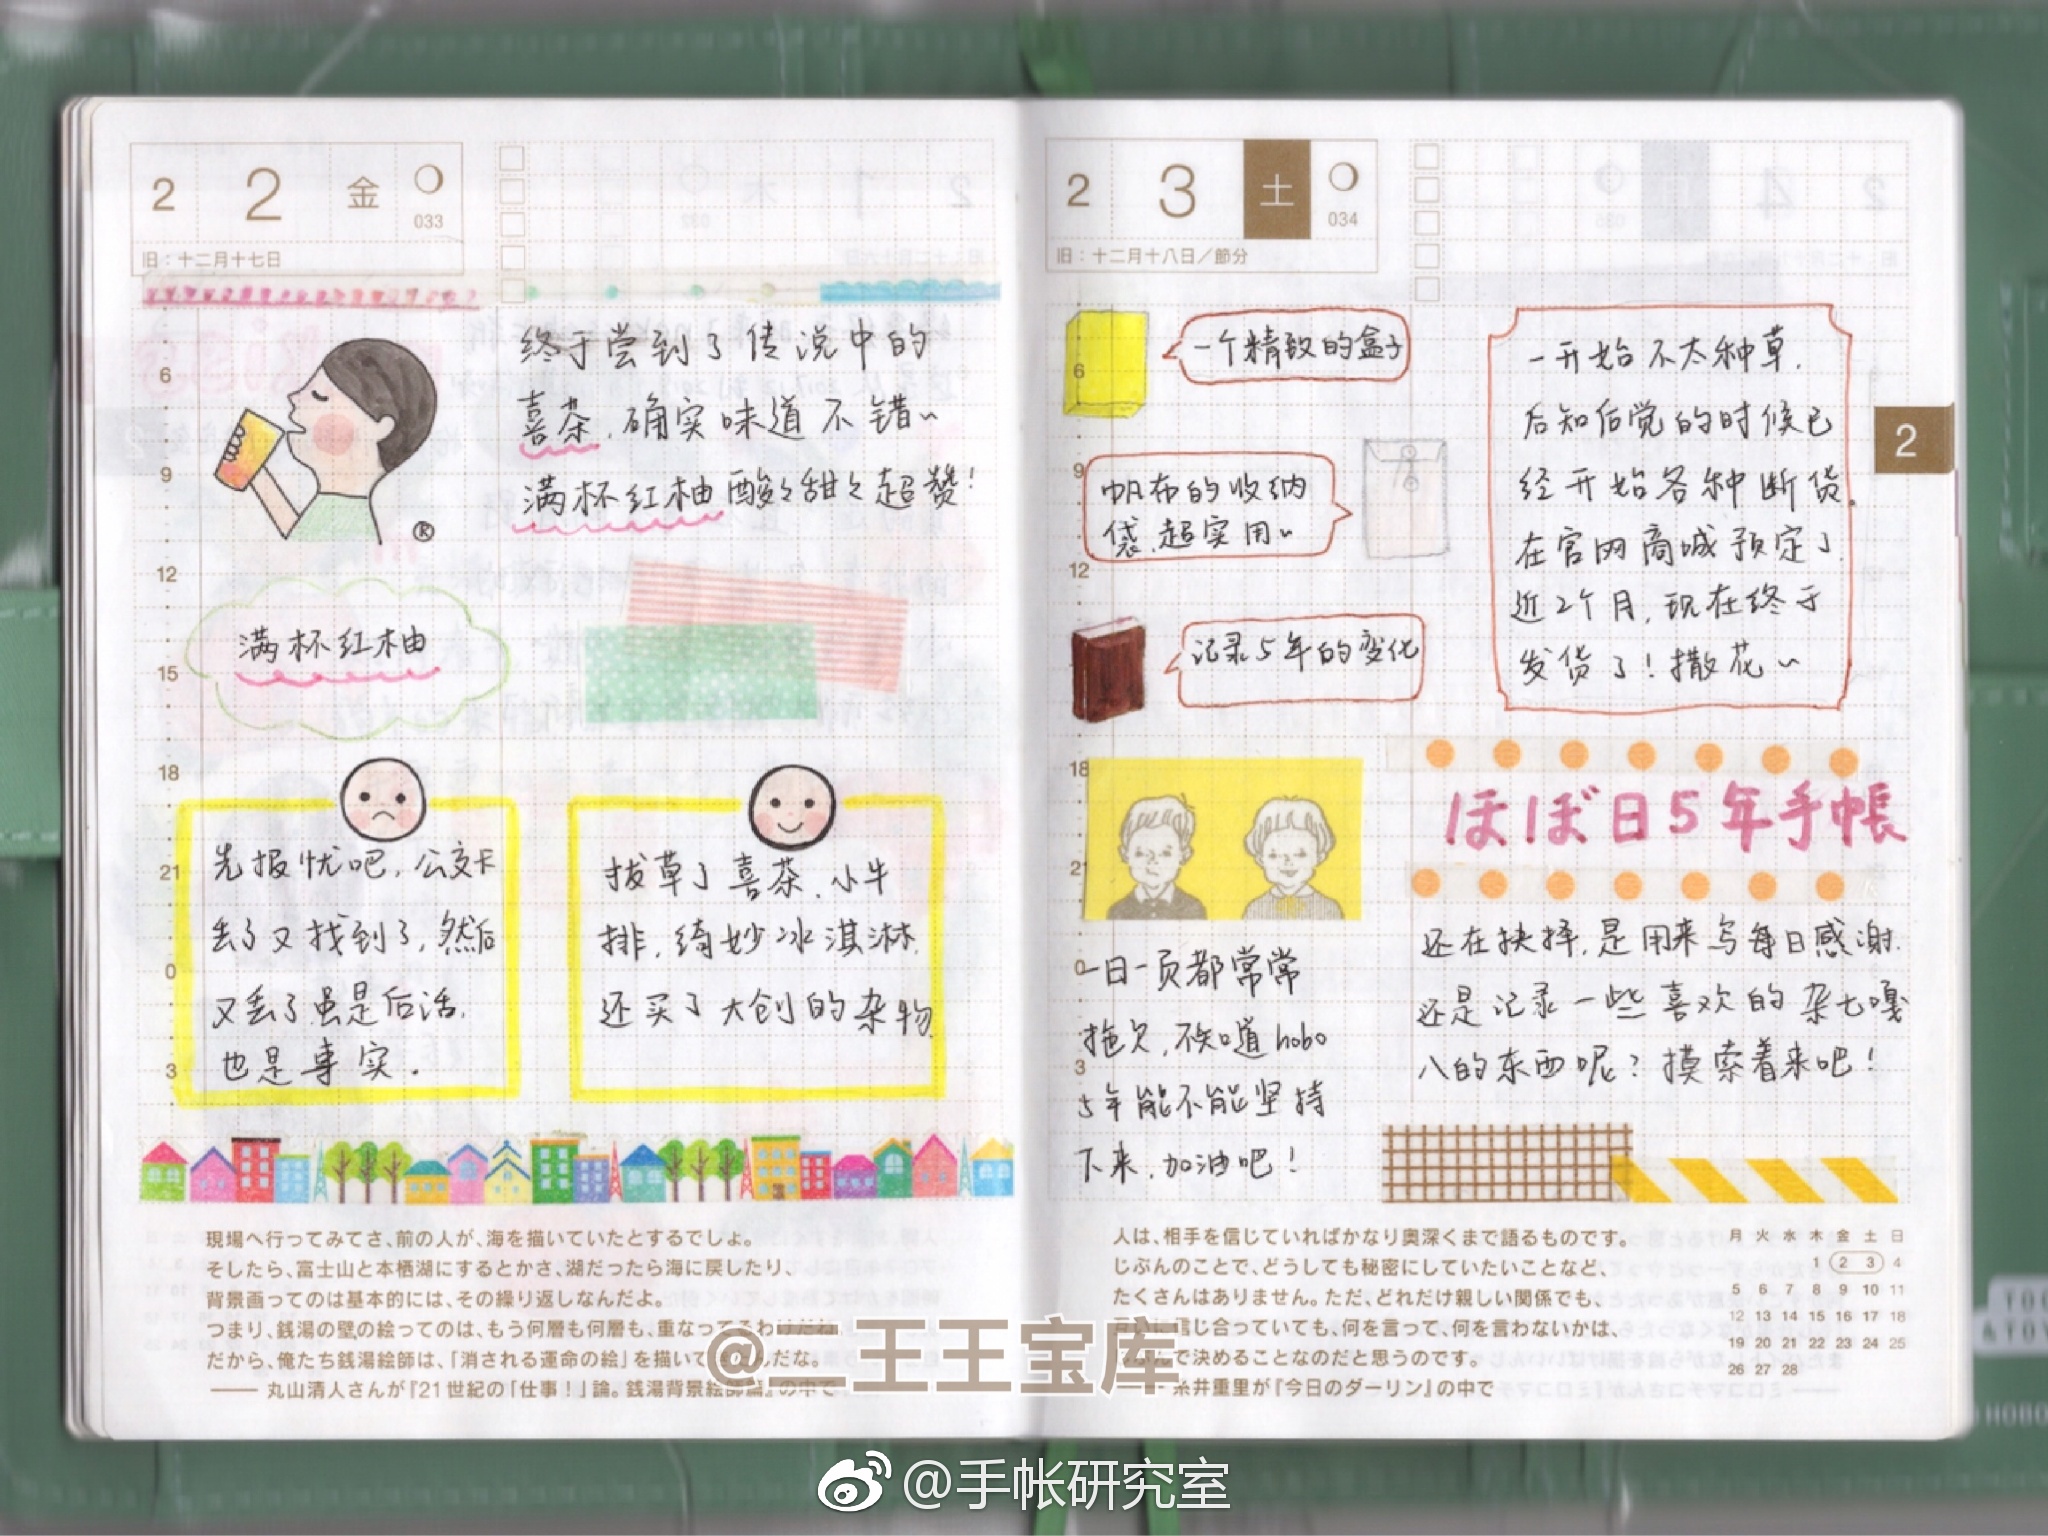 2 2 金
033
旧：十二月十七日
6
9
12
15
18
21
0
3
终于尝到了传说中的
喜茶，确实味道不错~
满杯红柚酸々甜々超赞！
®
满杯红柚
先报忧吧，公交卡
丢了又找到了，然后
又丢了虽是后话，
也是事实．
拔草了喜茶、小牛
排，绮妙冰淇淋，
还买了大创的杂物
現場へ行ってみてさ、前の人が、海を描いていたとするでしょ。
そしたら、富士山と本栖湖にするとかさ、湖だったら海に戻したり、
背景画ってのは基本的には、その繰り返しなんだよ。
つまり、銭湯の壁の絵ってのは、もう何層も何層も、重なってるわけだね。
だから、俺たち銭湯絵師は、「消される運命の絵」を描いてきたんだな。
—— 丸山清人さんが『21世紀の「仕事！」論。銭湯背景絵師篇』の中で
2 3 土
034
旧：十二月十八日／節分
2
6
9
12
18
21
0
3
一个精致的盒子
帆布的收纳
袋，超实用~
记录5年的变化
一开始不太种草，
后知后觉的时候已
经开始各种断货。
在官网商城预定了
近2个月，现在终于
发货了！撒花~
ほぼ日5年手帳
一日一页都常常
拖欠，不知道hobo
5年能不能坚持
下来，加油吧！
还在抉择，是用来写每日感谢，
还是记录一些喜欢的杂七嘎
八的东西呢？摸索着来吧！
人は、相手を信じていればかなり奥深くまで語るものです。
じぶんのことで、どうしても秘密にしていたいことなど、
たくさんはありません。ただ、どれだけ親しい関係でも、
信じ合っていても、何を言って、何を言わないかは、
で決めることなのだと思うのです。
—— 糸井重里が『今日のダーリン』の中で
月 火 水 木 金 土 日
1 2 3 4
5 6 7 8 9 10 11
12 13 14 15 16 17 18
19 20 21 22 23 24 25
26 27 28
@二王王宝库
@手帐研究室